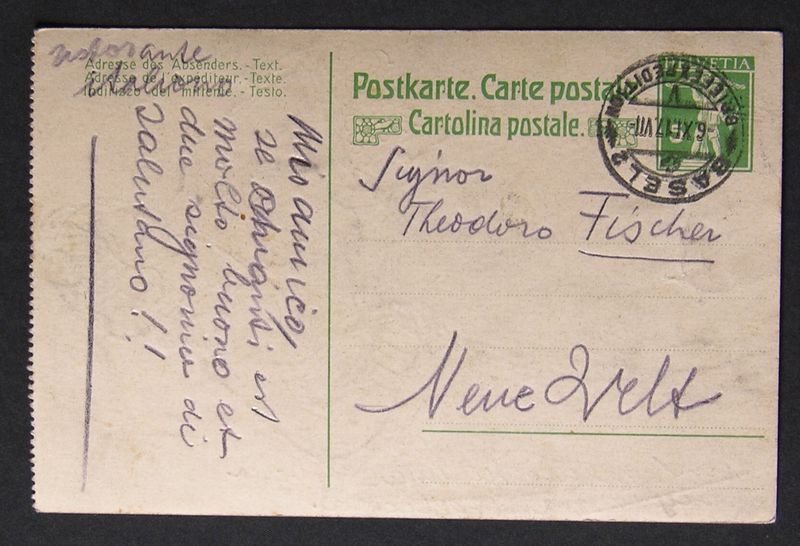 ristorante
italiano
Adresse des Absenders.-Text.
Adresse de l'expéditeur.-Texte.
Indirizzo del mittente.-Testo.
Mio amico,
se Chianti est
molto buono et
due signorine di
salutano!!
Postkarte. Carte postale
Cartolina postale.
HELVETIA
BASEL 2
BRIEFEXPEDITION
-6.XI.17.VII-
V
Signor
Theodoro Fischer
Neue Welt